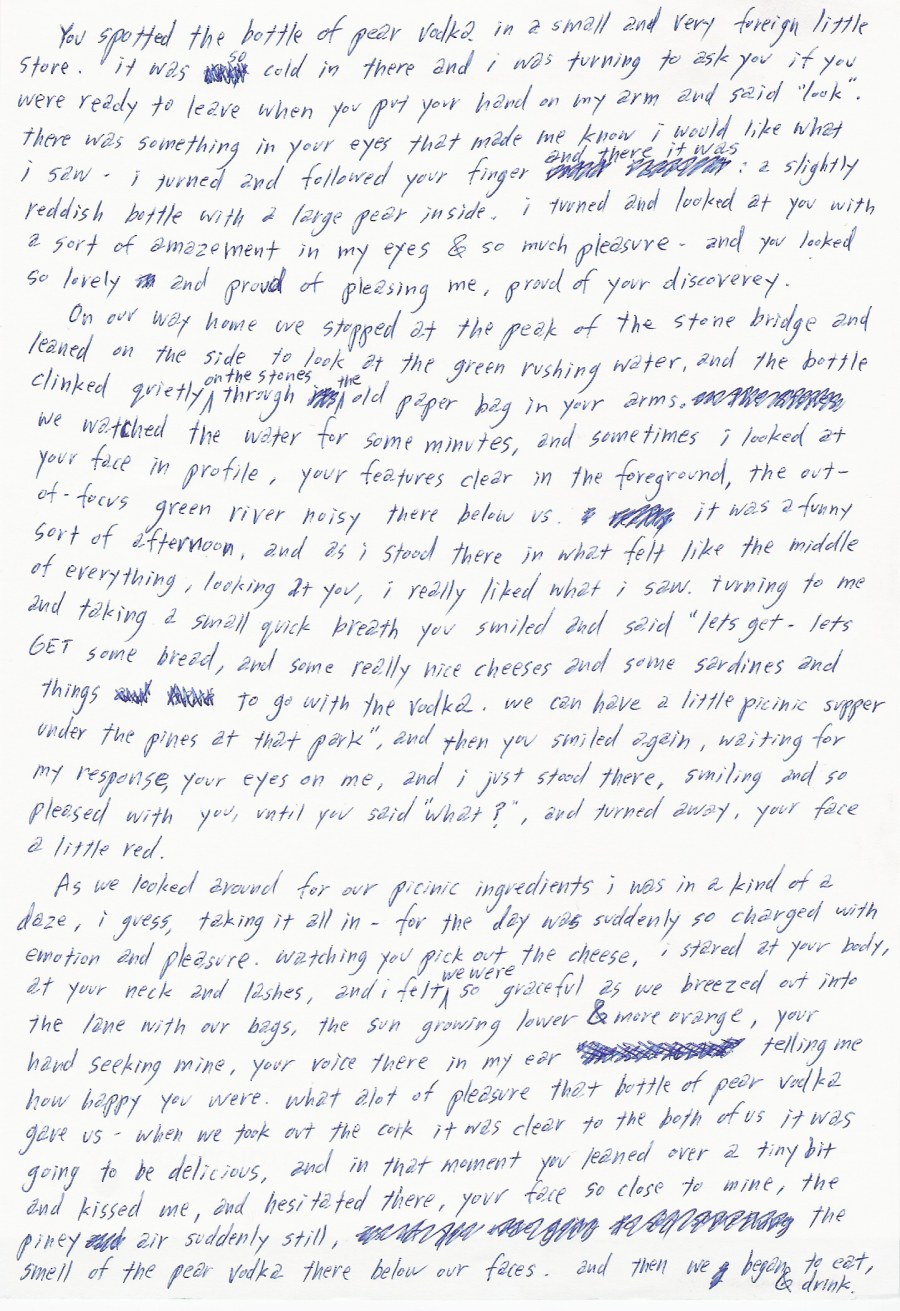 You spotted the bottle of pear vodka in a small and very foreign little
store. it was so cold in there and i was turning to ask you if you
were ready to leave when you put your hand on my arm and said "look".
there was something in your eyes that made me know i would like what
i saw - i turned and followed your finger and there it was : a slightly
reddish bottle with a large pear inside. i turned and looked at you with
a sort of amazement in my eyes & so much pleasure - and you looked
so lovely and proud of pleasing me, proud of your discoverey.
On our way home we stopped at the peak of the stone bridge and
leaned on the side to look at the green rushing water, and the bottle
clinked quietly on the stones through the old paper bag in your arms.
we watched the water for some minutes, and sometimes i looked at
your face in profile, your features clear in the foreground, the out-
of-focus green river noisy there below us. it was a funny
sort of afternoon, and as i stood there in what felt like the middle
of everything, looking at you, i really liked what i saw. turning to me
and taking a small quick breath you smiled and said "lets get - lets
GET some bread, and some really nice cheeses and some sardines and
things to go with the vodka. we can have a little picinic supper
under the pines at that park", and then you smiled again, waiting for
my response, your eyes on me, and i just stood there, smiling and so
pleased with you, until you said "what?", and turned away, your face
a little red.
As we looked around for our picinic ingredients i was in a kind of a
daze, i guess, taking it all in - for the day was suddenly so charged with
emotion and pleasure. watching you pick out the cheese, i stared at your body,
at your neck and lashes, and i felt we were so graceful as we breezed out into
the lane with our bags, the sun growing lower & more orange, your
hand seeking mine, your voice there in my ear telling me
how happy you were. what alot of pleasure that bottle of pear vodka
gave us - when we took out the cork it was clear to the both of us it was
going to be delicious, and in that moment you leaned over a tiny bit
and kissed me, and hesitated there, your face so close to mine, the
piney air suddenly still, the
smell of the pear vodka there below our faces. and then we began to eat,
& drink.